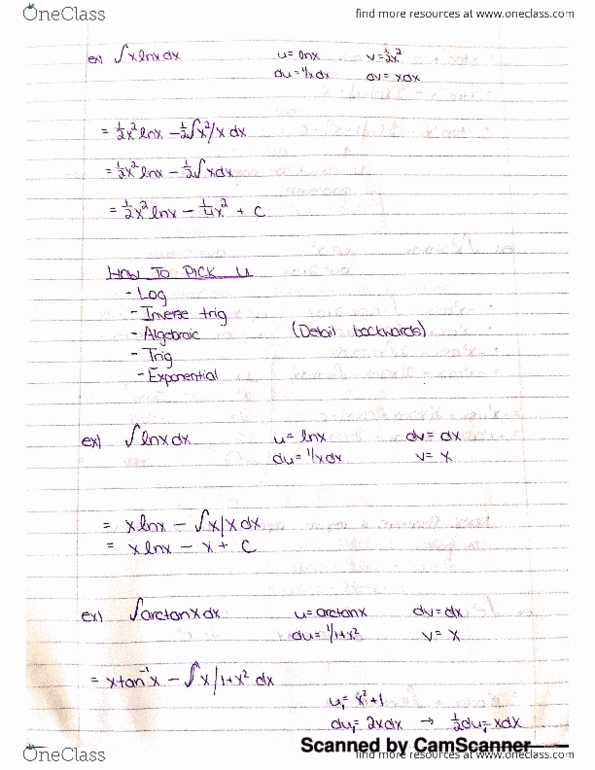 OneClass
find more resources at www.oneclass.com
ex) ∫xlnxdx u=lnx v=½x²
du=1/xdx dv=xdx
= ½x²lnx - ½∫x²/x dx
= ½x²lnx - ½∫xdx
= ½x²lnx - ¼x² + C
HOW TO PICK U
- Log
- Inverse trig
- Algebraic (Detail backwards)
- Trig
- Exponential
ex) ∫lnxdx u=lnx dv=dx
du=1/xdx v=x
= xlnx - ∫x/xdx
= xlnx - x + C
ex) ∫arctanxdx u=arctanx dv=dx
du=1/1+x² v=x
= xtan⁻¹x - ∫x/1+x² dx
u₁=x²+1
du₁=2xdx → ½du₁=xdx
Scanned by CamScanner
OneClass
find more resources at www.oneclass.com